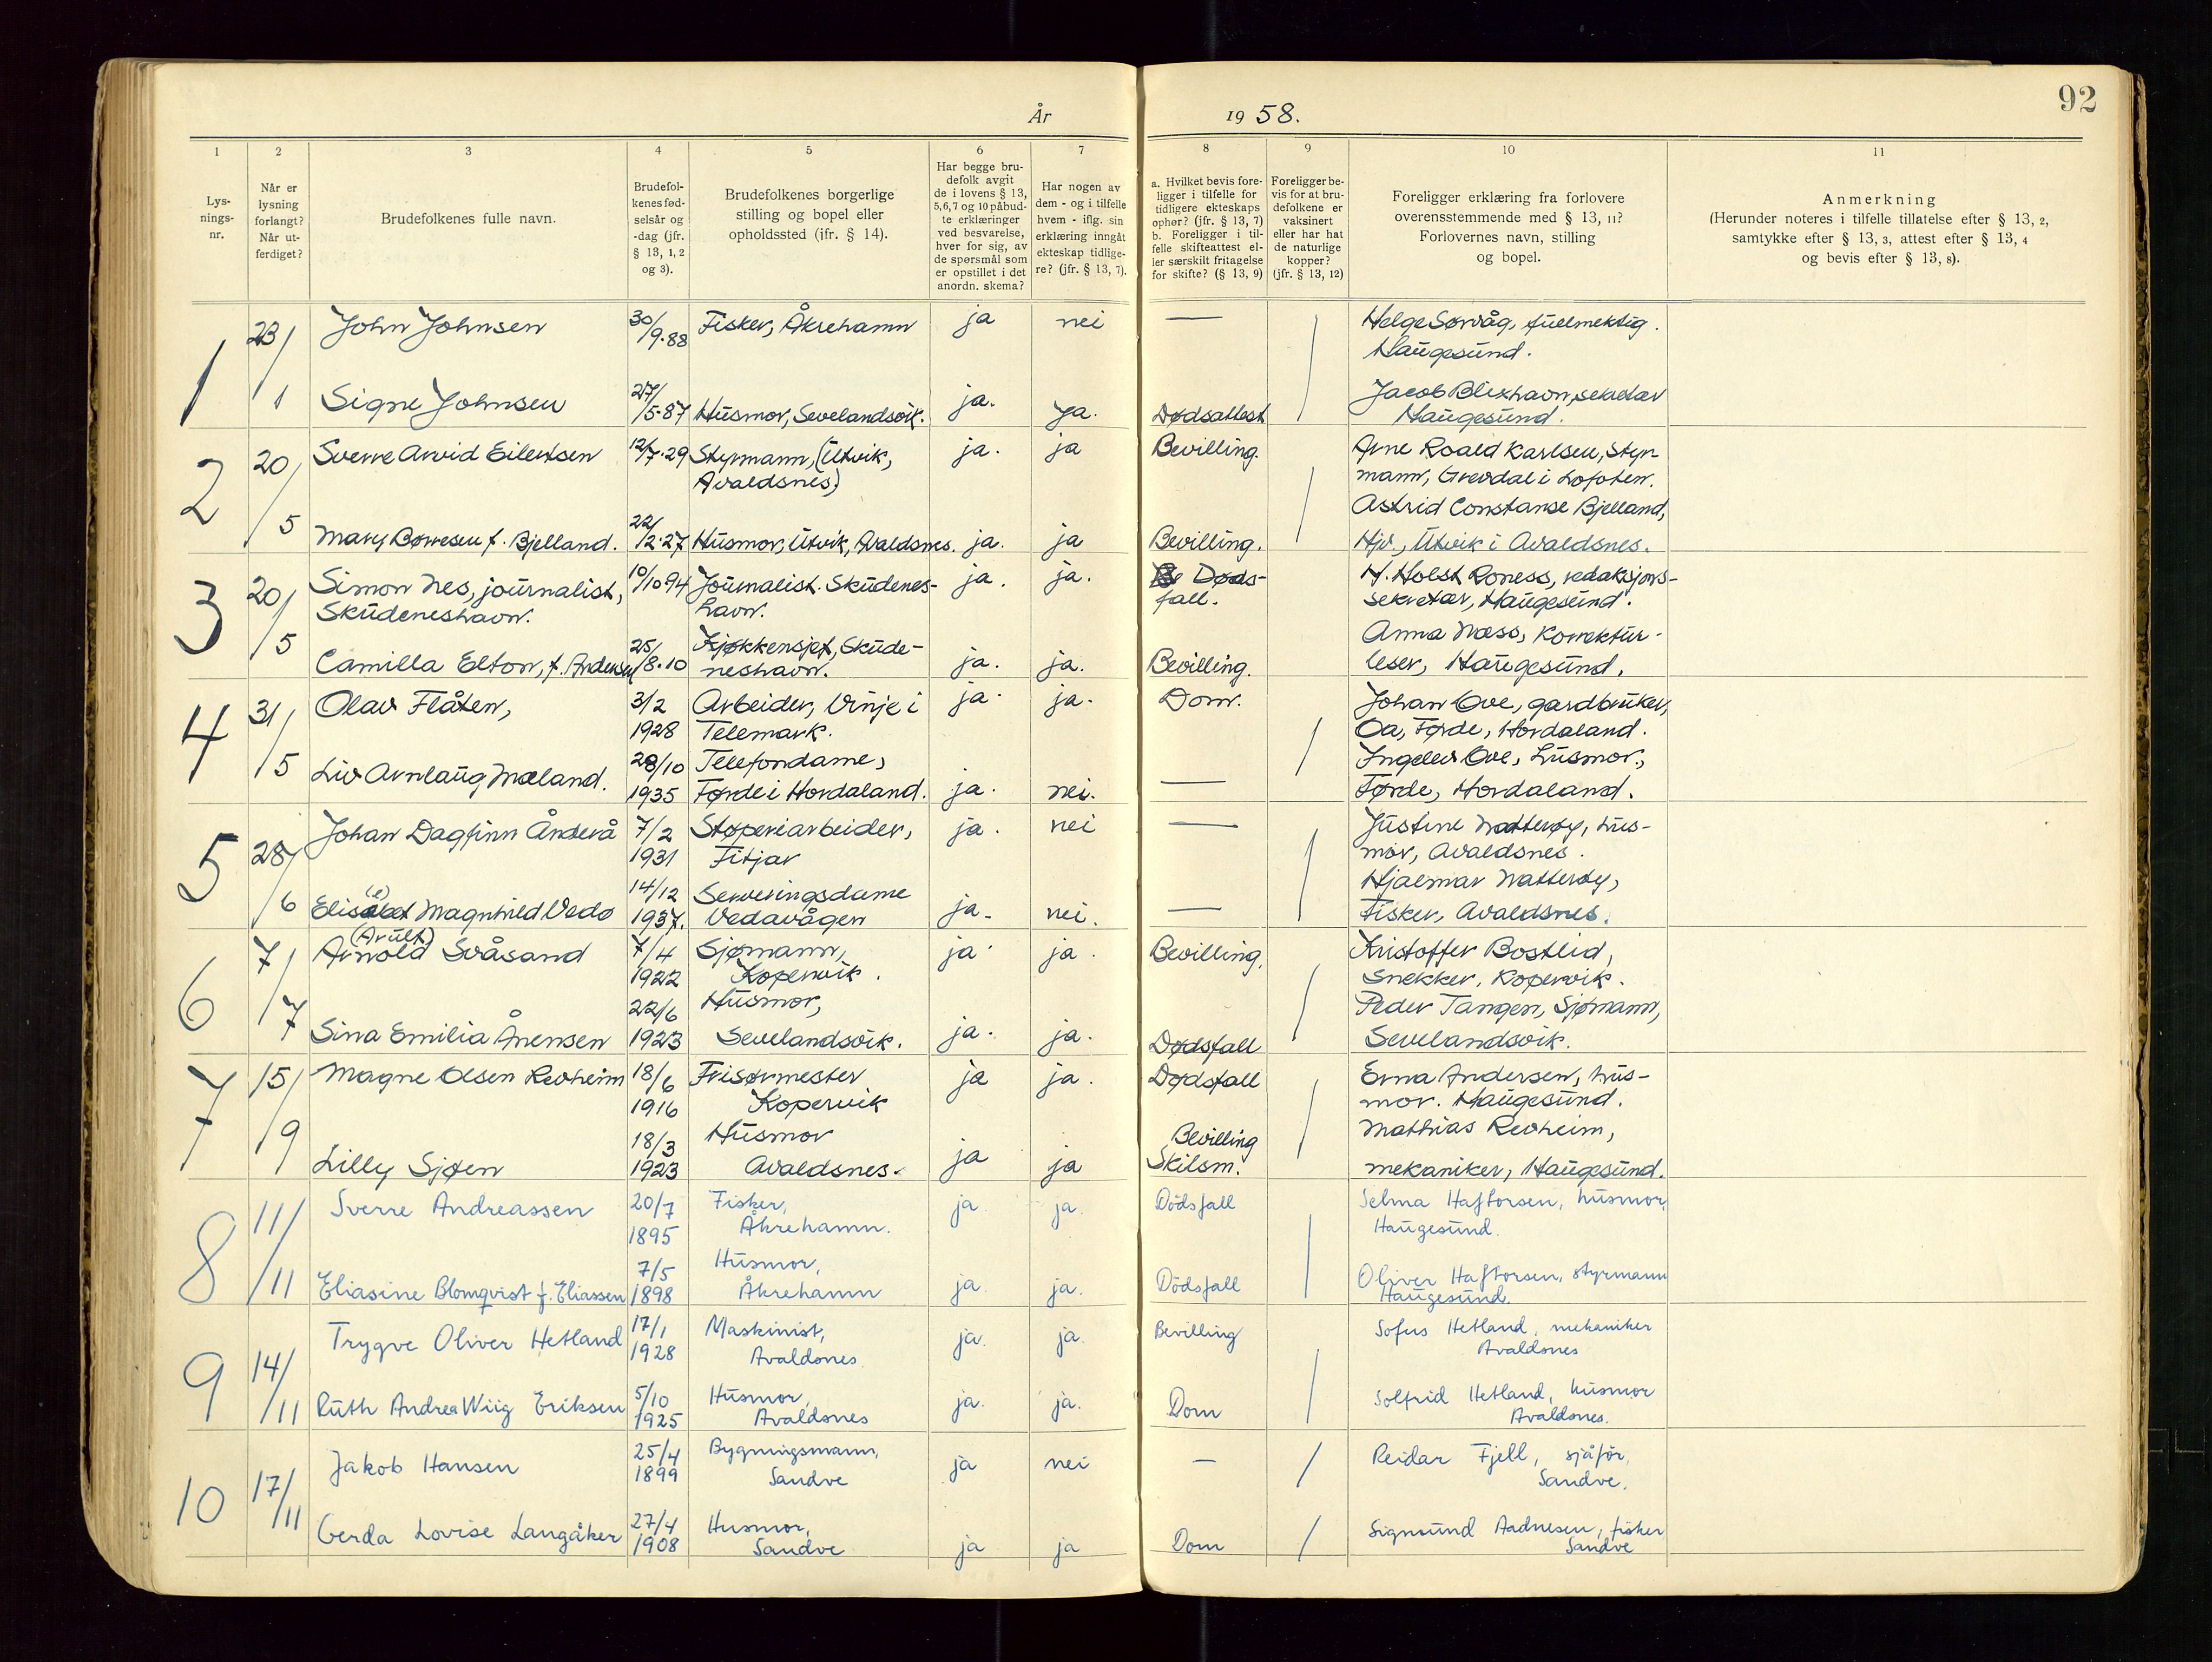 92
År 1958.
1
2
3
4
5
6
7
8
9
10
11
Lys-
nings-
nr.
Når er
lysning
forlangt?
Når ut-
ferdiget?
Brudefolkenes fulle navn.
Brudefol-
kenes fød-
selsår og
-dag (jfr.
§ 13, 1, 2
og 3).
Brudefolkenes borgerlige
stilling og bopel eller
opholdssted (jfr. § 14).
Har begge bru-
defolk avgit
de i lovens § 13,
5, 6, 7 og 10 påbud-
te erklæringer
ved besvarelse,
hver for sig, av
de spørsmål som
er opstillet i det
anordn. skema?
Har nogen av
dem - og i tilfelle
hvem - iflg. sin
erklæring inngåt
ekteskap tidlige-
re? (jfr. § 13, 7).
a. Hvilket bevis fore-
ligger i tilfelle for
tidligere ekteskaps
ophør? (jfr. § 13, 7)
b. Foreligger i til-
felle skifteattest el-
ler særskilt fritagelse
for skifte? (§ 13, 9)
Foreligger be-
vis for at bru-
defolkene er
vaksinert
eller har hat
de naturlige
kopper?
(jfr. § 13, 12)
Foreligger erklæring fra forlovere
overensstemmende med § 13, 11?
Forlovernes navn, stilling
og bopel.
Anmerkning
(Herunder noteres i tilfelle tillatelse efter § 13, 2,
samtykke efter § 13, 3, attest efter § 13, 4
og bevis efter § 13, 8).
1
23/1
John Johnsen
30/9.88
Fisker, Åkrehamn
ja
nei
—
Helge Sørvåg, fullmektig.
Haugesund.
Signe Johnsen
27/5.87
Husmor, Sevelandsvik.
ja.
Ja.
Dødsattest
Jacob Blikhavn, sekretær
Haugesund.
2
20/5
Sverre Arvid Eilertsen
12/7.29
Styrmann, (Utvik,
Avaldsnes)
ja.
ja
Bevilling.
Arne Roald Karlsen, styr-
mann, Grevdal i Lofoten.
Mary Børresen f. Bjelland.
22/2.27
Husmor, Utvik, Avaldsnes.
ja.
ja
Bevilling.
Astrid Constanse Bjelland,
Hjv., Utvik i Avaldsnes.
3
20/5
Simon Nes, journalist,
Skudeneshavn.
10/10 94
Journalist. Skudenes-
havn.
ja.
ja.
Døds-
fall.
H. Holst Roness, redaksjons-
sekretær, Haugesund.
Camilla Elton, f. Andersen
25/8.10
Kjøkkensjef, Skude-
neshavn.
ja.
ja.
Bevilling.
Anna Næss, Korrektur-
leser, Haugesund.
4
31/5
Olav Flåten,
3/2
1928
Arbeider, Vinje i
Telemark.
ja.
ja.
Dom.
Johan Ove, gardbruker,
Oa, Førde, Hordaland.
Liv Arnlaug Mæland.
28/10
1935
Telefondame,
Førde i Hordaland.
ja.
nei.
—
Ingelev Ove, husmor.,
Førde, Hordaland.
5
28/6
Johan Dagfinn Ånderå
7/2
1931
Støperiarbeider,
Fitjar
ja.
nei
—
Justine Natterøy, hus-
mor, Avaldsnes.
(e)
Elisabet Magnhild Vedø
14/12
1937.
Serveringsdame
Vedavågen
ja.
nei.
—
Hjalmar Natterøy,
Fisker, Avaldsnes.
6
7/7
(Arult)
Arnold Svåsand
7/4
1922
Sjømann,
Kopervik.
ja
ja.
Bevilling.
Kristoffer Bostlid,
snekker, Kopervik.
Sina Emilia Ånensen
22/6
1923
Husmor,
Sevelandsvik.
ja.
ja.
Dødsfall
Peder Tangen, sjømann,
Sevelandsvik.
7
15/9
Magne Olsen Revheim
18/6
1916
Frisørmester
Kopervik
ja
ja.
Dødsfall
Erna Andersen, hus-
mor. Haugesund.
Lilly Sjøen
18/3
1923
Husmor
Avaldsnes.
ja
ja
Bevilling
Skilsm.
Mathias Revheim,
mekaniker, Haugesund.
8
11/11
Sverre Andreassen
20/7
1895
Fisker,
Åkrehamn.
ja
ja.
Dödsfall
Selma Haftorsen, husmor,
Haugesund.
Eliasine Blomqvist f. Eliassen
7/5
1898
Husmor,
Åkrehamn
ja.
ja.
Dödsfall
Oliver Haftorsen, styrmann
Haugesund.
9
14/11
Trygve Oliver Hetland
17/1
1928
Maskinist,
Avaldsnes.
ja.
ja.
Bevilling
Sofus Hetland, mekaniker
Avaldsnes
Ruth Andrea Wiig Eriksen
5/10
1925
Husmor,
Avaldsnes
ja.
ja.
Dom
Solfrid Hetland, husmor
Avaldsnes.
10
17/11
Jakob Hansen
25/4
1899
Bygningsmann,
Sandve
ja
nei
—
Reidar Fjell, sjåför,
Sandve.
Gerda Lovise Langåker
27/4
1908
Husmor,
Sandve
ja
ja
Dom
Sigmund Aadnesen, fisker
Sandve